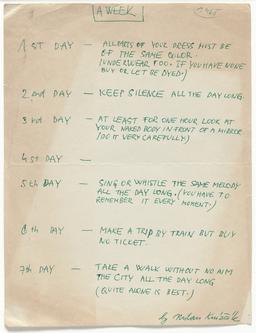 A WEEK
1ST DAY — ALL PARTS OF YOUR DRESS MUST BE
OF THE SAME COLOR.
(UNDERWEAR TOO. IF YOU HAVE NONE
BUY OR LET BE DYED.)
2nd DAY — KEEP SILENCE ALL THE DAY LONG.
3rd DAY — AT LEAST FOR ONE HOUR LOOK AT
YOUR NAKED BODY IN FRONT OF A MIRROR.
(DO IT VERY CAREFULLY)
4st DAY —
5th DAY — SING OR WHISTLE THE SAME MELODY
ALL THE DAY LONG. (YOU HAVE TO
REMEMBER IT EVERY MOMENT.)
6th DAY — MAKE A TRIP BY TRAIN BUT BUY
NO TICKET.
7th DAY — TAKE A WALK WITHOUT NO AIM
THE CITY ALL THE DAY LONG
(QUITE ALONE IS BEST.)
by Milan Knížák